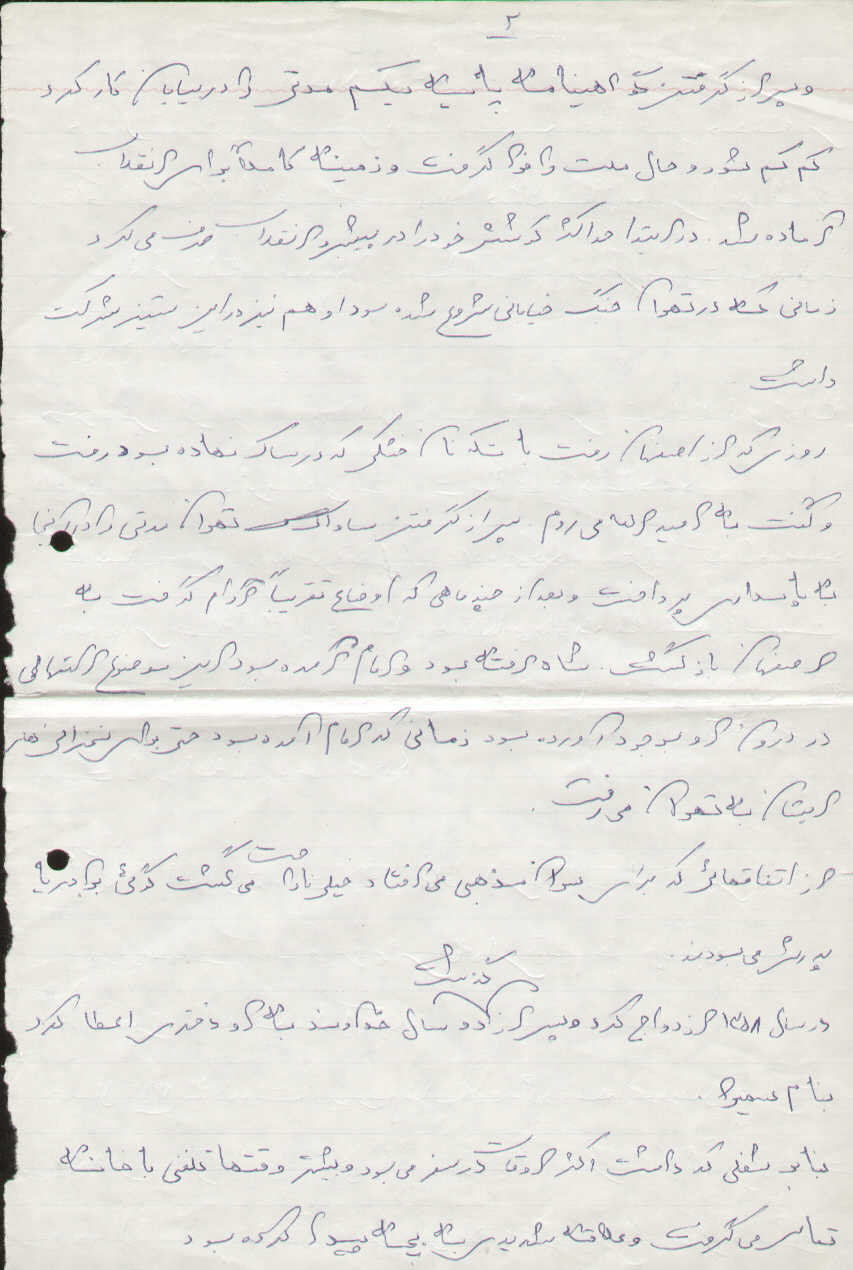 ۲
و پس از گرفتن گواهینامه پایه یکم مدتی را در بیابان کار کرد
کم کم شور و حال ملت را فرا گرفت و زمینه کاملاً برای انقلاب
آماده شد. در ابتدا حداکثر کوشش خود را در پیشبرد انقلاب صرف می کرد
زمانی که در تهران جنگ خیابانی شروع شده بود او هم نیز در این ستیز شرکت
داشت
روزی که از اصفهان رفت با تکه نان خشکی که در ساک نهاده بود رفت
و گفت به امید الله می روم. پس از گرفتن ساواک تهران مدتی را در آنجا
به پاسداری پرداخت و بعد از چند ماهی که اوضاع تقریباً آرام گرفت به
اصفهان بازگشت. شاه رفته بود و امام آمده بود این موضوع التهابی
در درون او بوجود آورده بود زمانی که امام آمده بود حتی برای سخنرانی های
ایشان به تهران می رفت.
از اتفاقهائی که برای سران مذهبی می افتاد خیلی ناراحت می گشت گوئی برادر یا
پدرش می بودند.
در سال ۱۳۵۸ ازدواج کرد و پس از گذشت دو سال خداوند به او دختری اعطا کرد
بنام سمیرا.
بنا بر شغلی که داشت اکثر اوقات در سفر می بود و بیشتر وقتها تلفنی با خانه
تماس می گرفت و علاقه شدیدی به بچه پیدا کرده بود